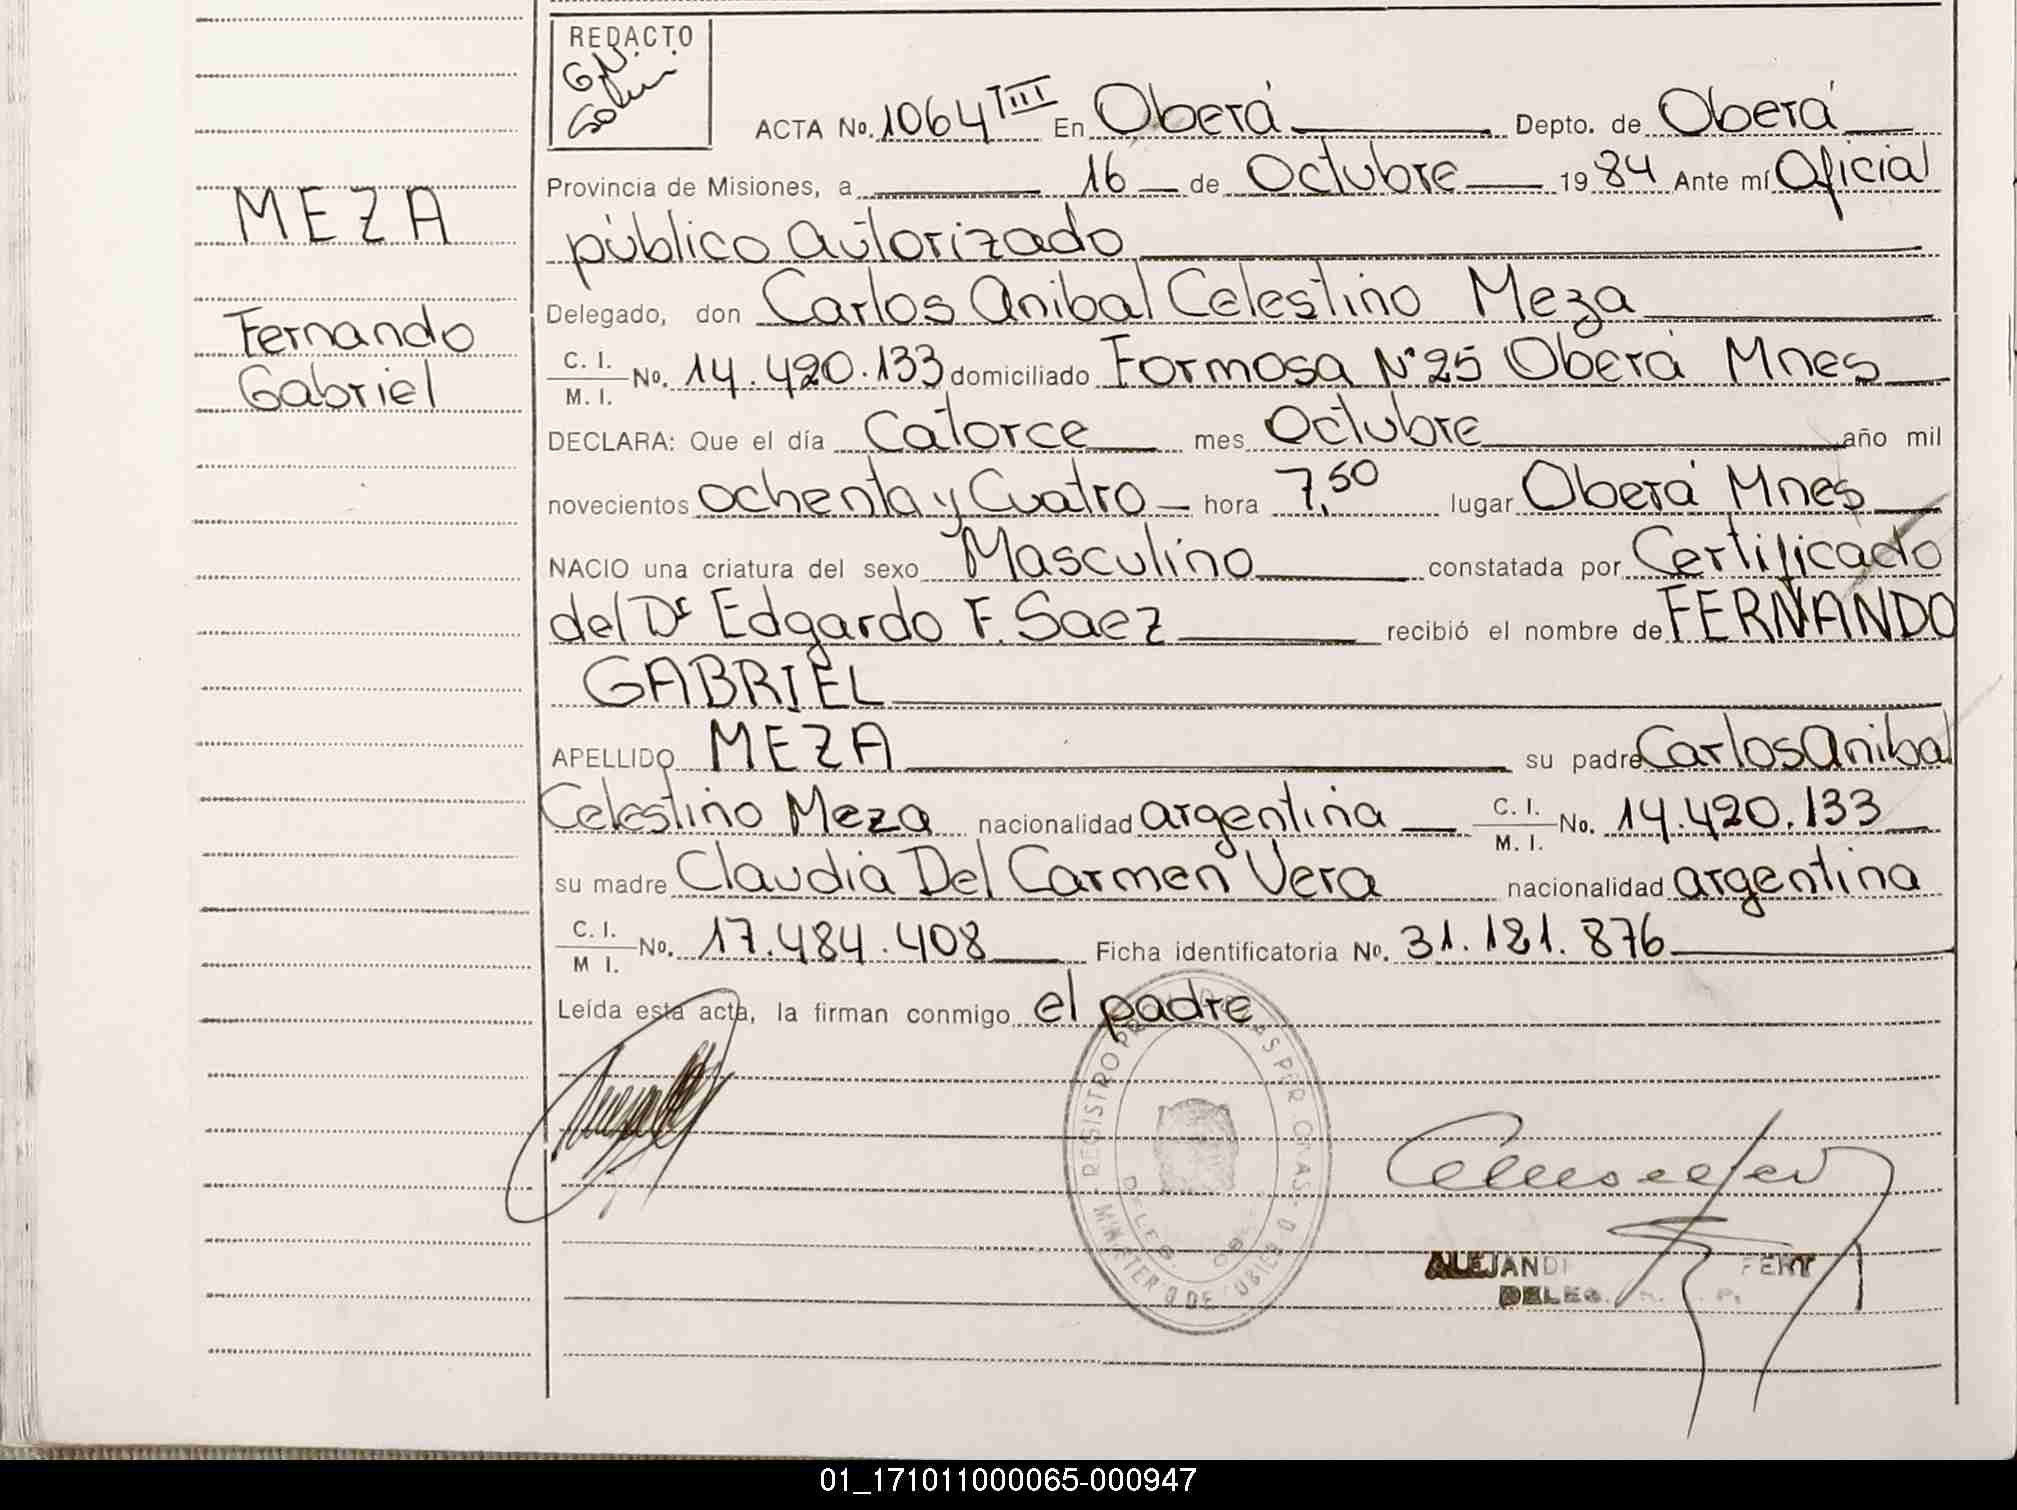 REDACTO
G.N.
ACTA No. 1064 III En Oberá Depto. de Oberá
Provincia de Misiones, a 16 de Octubre 1984 Ante mí Oficial
público autorizado
MEZA
Delegado, don Carlos Anibal Celestino Meza
Fernando
Gabriel
C. I.
M. I. No. 14.420.133 domiciliado Formosa N°25 Oberá Mnes
DECLARA: Que el día Catorce mes Octubre año mil
novecientos ochenta y Cuatro hora 7,50 lugar Oberá Mnes
NACIO una criatura del sexo Masculino constatada por Certificado
del Dr Edgardo F. Saez recibió el nombre de FERNANDO
GABRIEL
APELLIDO MEZA su padre Carlos Anibal
Celestino Meza nacionalidad argentina C. I. M. I. No. 14.420.133
su madre Claudia Del Carmen Vera nacionalidad argentina
C. I.
M I. No. 17.484.408 Ficha identificatoria No. 31.181.876
Leída esta acta, la firman conmigo el padre
REGISTRO PER
ALEJAND FERT
DELEG.
01_171011000065-000947